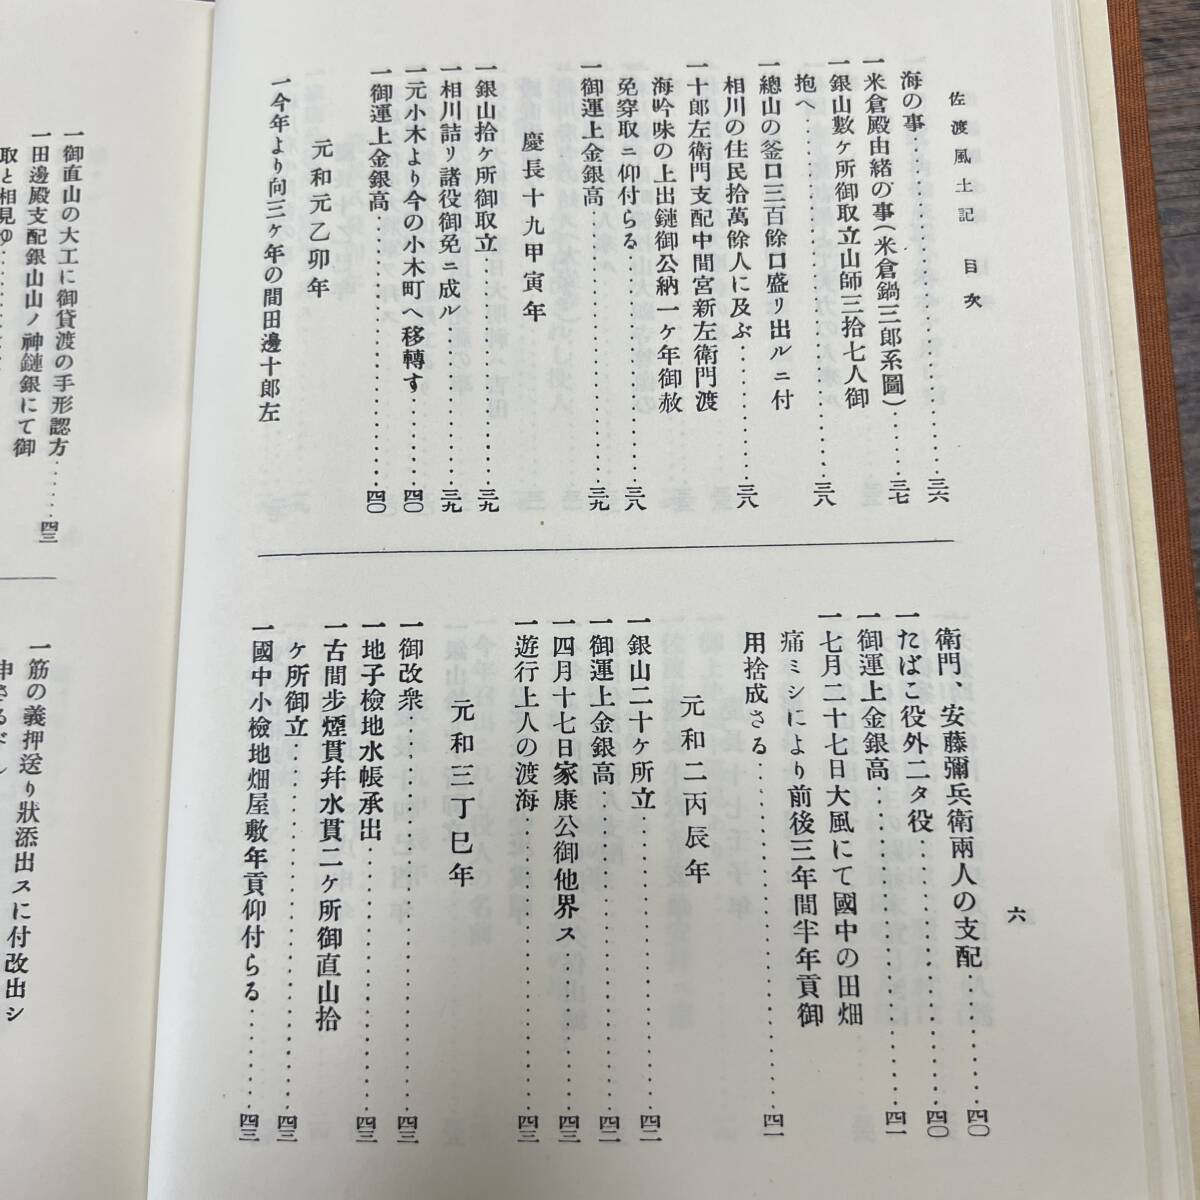 佐渡風土記 目次
六
海の事‥‥‥‥三六
一米倉殿由緒の事(米倉鍋三郎系圖)‥‥三七
一銀山數ヶ所御取立山師三拾七人御
抱へ‥‥‥‥三八
一總山の釜口三百餘口盛リ出ルニ付
相川の住民拾萬餘人に及ぶ‥‥‥‥三八
一十郎左衛門支配中間宮新左衛門渡
海吟味の上出鏈御公納一ヶ年御赦
免穿取ニ仰付らる‥‥‥‥三八
一御運上金銀高‥‥‥‥三九
慶長十九甲寅年
一銀山拾ヶ所御取立‥‥‥‥三九
一相川詰リ諸役御免ニ成ル‥‥‥‥三九
一元小木より今の小木町へ移轉す‥‥‥‥四〇
一御運上金銀高‥‥‥‥四〇
元和元乙卯年
一今年より向三ヶ年の間田邊十郎左
衛門、安藤彌兵衛兩人の支配‥‥‥‥四〇
一たばこ役外二タ役‥‥‥‥四〇
一御運上金銀高‥‥‥‥四一
一七月二十七日大風にて國中の田畑
痛ミシにより前後三年間半年貢御
用捨成さる‥‥‥‥四一
元和二丙辰年
一銀山二十ヶ所立‥‥‥‥四二
一御運上金銀高‥‥‥‥四二
一四月十七日家康公御他界ス‥‥‥‥四三
一遊行上人の渡海‥‥‥‥四三
元和三丁巳年
一御改衆‥‥‥‥四三
一地子檢地水帳承出‥‥‥‥四三
一古間步煙貫幷水貫二ヶ所御直山拾
ヶ所御立‥‥‥‥四三
一國中小檢地畑屋敷年貢仰付らる‥‥‥‥四三
一御直山の大工に御貸渡の手形認方‥‥‥‥四三
一田邊殿支配銀山山ノ神鏈銀にて御
取と相見ゆ‥‥‥‥
一筋の義押送り狀添出スに付改出シ